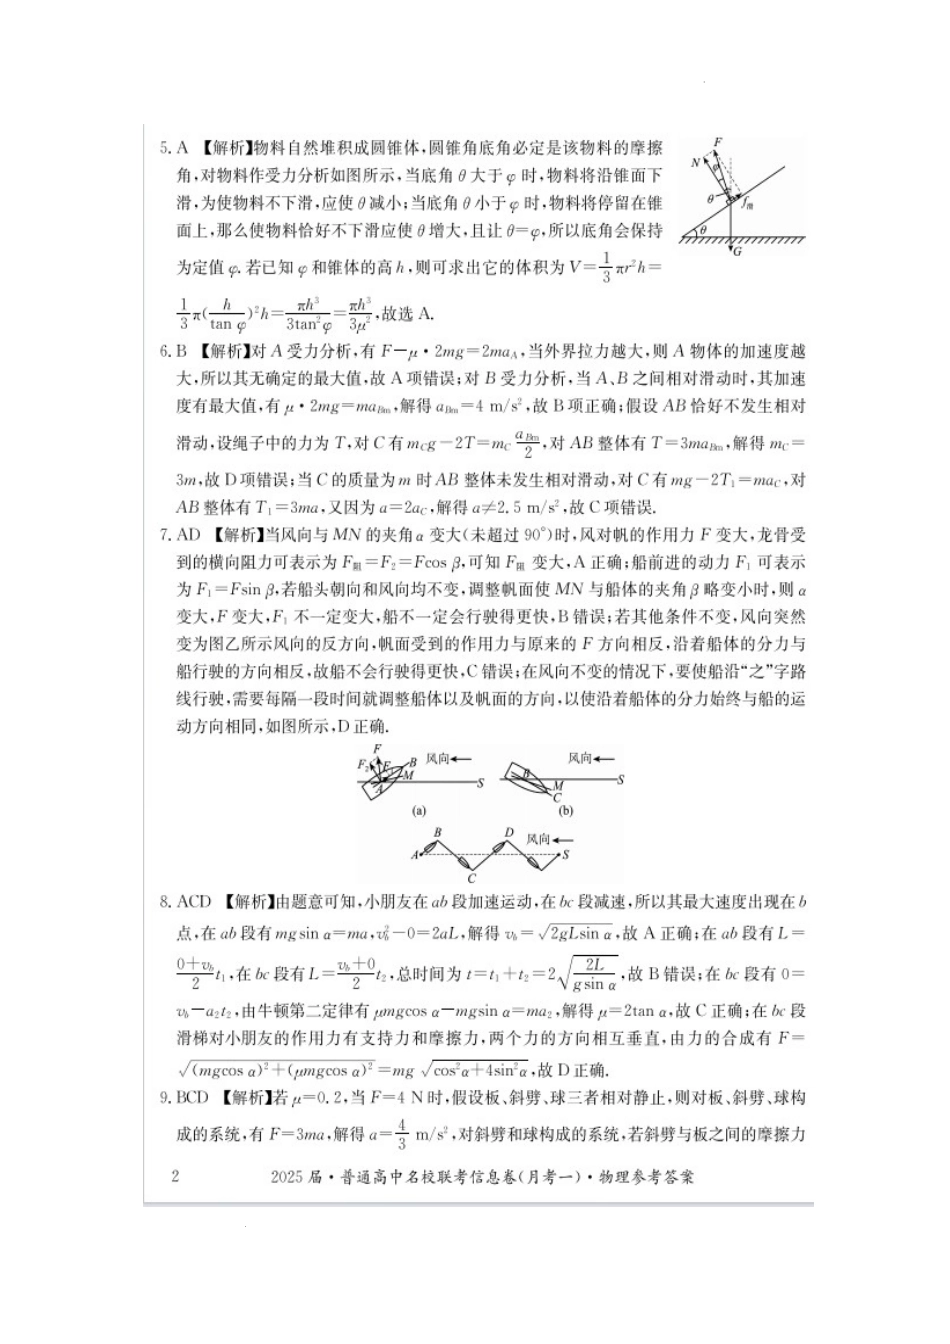 5. A 【解析】物料自然堆积成圆锥体,圆锥角底角必定是该物料的摩擦
角,对物料作受力分析如图所示,当底角 θ 大于 φ 时,物料将沿锥面下
滑,为使物料不下滑,应使 θ 减小;当底角 θ 小于 φ 时,物料将停留在锥
面上,那么使物料恰好不下滑应使 θ 增大,且让 θ=φ,所以底角会保持
为定值 φ. 若已知 φ 和锥体的高 h,则可求出它的体积为 V=1/3 πr²h=
1/3 π(h/tan φ)²h=πh³/3tan²φ=πh³/3μ²,故选 A.
F
N
φ
θ
fm
θ
G
6. B 【解析】对 A 受力分析,有 F-μ·2mg=2maA,当外界拉力越大,则 A 物体的加速度越
大,所以其无确定的最大值,故 A 项错误;对 B 受力分析,当 A、B 之间相对滑动时,其加速
度有最大值,有 μ·2mg=maBm,解得 aBm=4 m/s²,故 B 项正确;假设 AB 恰好不发生相对
滑动,设绳子中的力为 T,对 C 有 mCg-2T=mC aBm/2,对 AB 整体有 T=3maBm,解得 mC=
3m,故 D 项错误;当 C 的质量为 m 时 AB 整体未发生相对滑动,对 C 有 mg-2T₁=maC,对
AB 整体有 T₁=3ma,又因为 a=2aC,解得 a≠2.5 m/s²,故 C 项错误.
7. AD 【解析】当风向与 MN 的夹角 α 变大(未超过 90°)时,风对帆的作用力 F 变大,龙骨受
到的横向阻力可表示为 F阻=F₂=Fcos β,可知 F阻 变大,A 正确;船前进的动力 F₁ 可表示
为 F₁=Fsin β,若船头朝向和风向均不变,调整帆面使 MN 与船体的夹角 β 略变小时,则 α
变大,F 变大,F₁ 不一定变大,船不一定会行驶得更快,B 错误;若其他条件不变,风向突然
变为图乙所示风向的反方向,帆面受到的作用力与原来的 F 方向相反,沿着船体的分力与
船行驶的方向相反,故船不会行驶得更快,C 错误;在风向不变的情况下,要使船沿“之”字路
线行驶,需要每隔一段时间就调整船体以及帆面的方向,以使沿着船体的分力始终与船的运
动方向相同,如图所示,D 正确.
F
F₂
F₁
B
M
A
风向
S
(a)
风向
B
M
C
S
(b)
A
B
C
D
风向
S
8. ACD 【解析】由题意可知,小朋友在 ab 段加速运动,在 bc 段减速,所以其最大速度出现在 b
点,在 ab 段有 mgsin α=ma,v_b²-0=2aL,解得 v_b=√(2gLsin α),故 A 正确;在 ab 段有 L=
(0+v_b)/2 t₁,在 bc 段有 L=(v_b+0)/2 t₂,总时间为 t=t₁+t₂=2√(2L/gsin α),故 B 错误;在 bc 段有 0=
v_b-a₂t₂,由牛顿第二定律有 μmgcos α-mgsin α=ma₂,解得 μ=2tan α,故 C 正确;在 bc 段
滑梯对小朋友的作用力有支持力和摩擦力,两个力的方向相互垂直,由力的合成有 F=
√((mgcos α)²+(μmgcos α)²)=mg√(cos²α+4sin²α),故 D 正确.
9. BCD 【解析】若 μ=0.2,当 F=4 N 时,假设板、斜劈、球三者相对静止,则对板、斜劈、球构
成的系统,有 F=3ma,解得 a=4/3 m/s²,对斜劈和球构成的系统,若斜劈与板之间的摩擦力
2 2025 届·普通高中名校联考信息卷(月考一)·物理参考答案